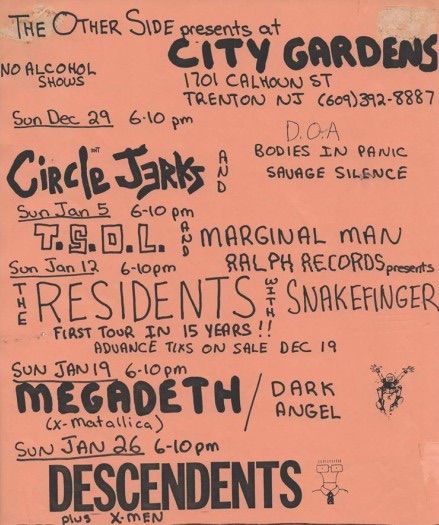 THE OTHER SIDE presents at
CITY GARDENS
NO ALCOHOL
SHOWS
1701 CALHOUN ST
TRENTON NJ (609)392-8887
Sun Dec 29 6-10 pm
CIRCLE JERKS AND
D.O.A
BODIES IN PANIC
SAVAGE SILENCE
Sun Jan 5 6-10 pm
T.S.O.L. AND MARGINAL MAN
Sun Jan 12 6-10pm
RALPH RECORDS presents
THE RESIDENTS WITH SNAKEFINGER
FIRST TOUR IN 15 YEARS!!
ADVANCE TIXS ON SALE DEC 19
SUN JAN 19 6-10pm
MEGADETH / DARK
ANGEL
(x-Matallica)
SUN JAN 26 6-10pm
DESCENDENTS
plus X-MEN